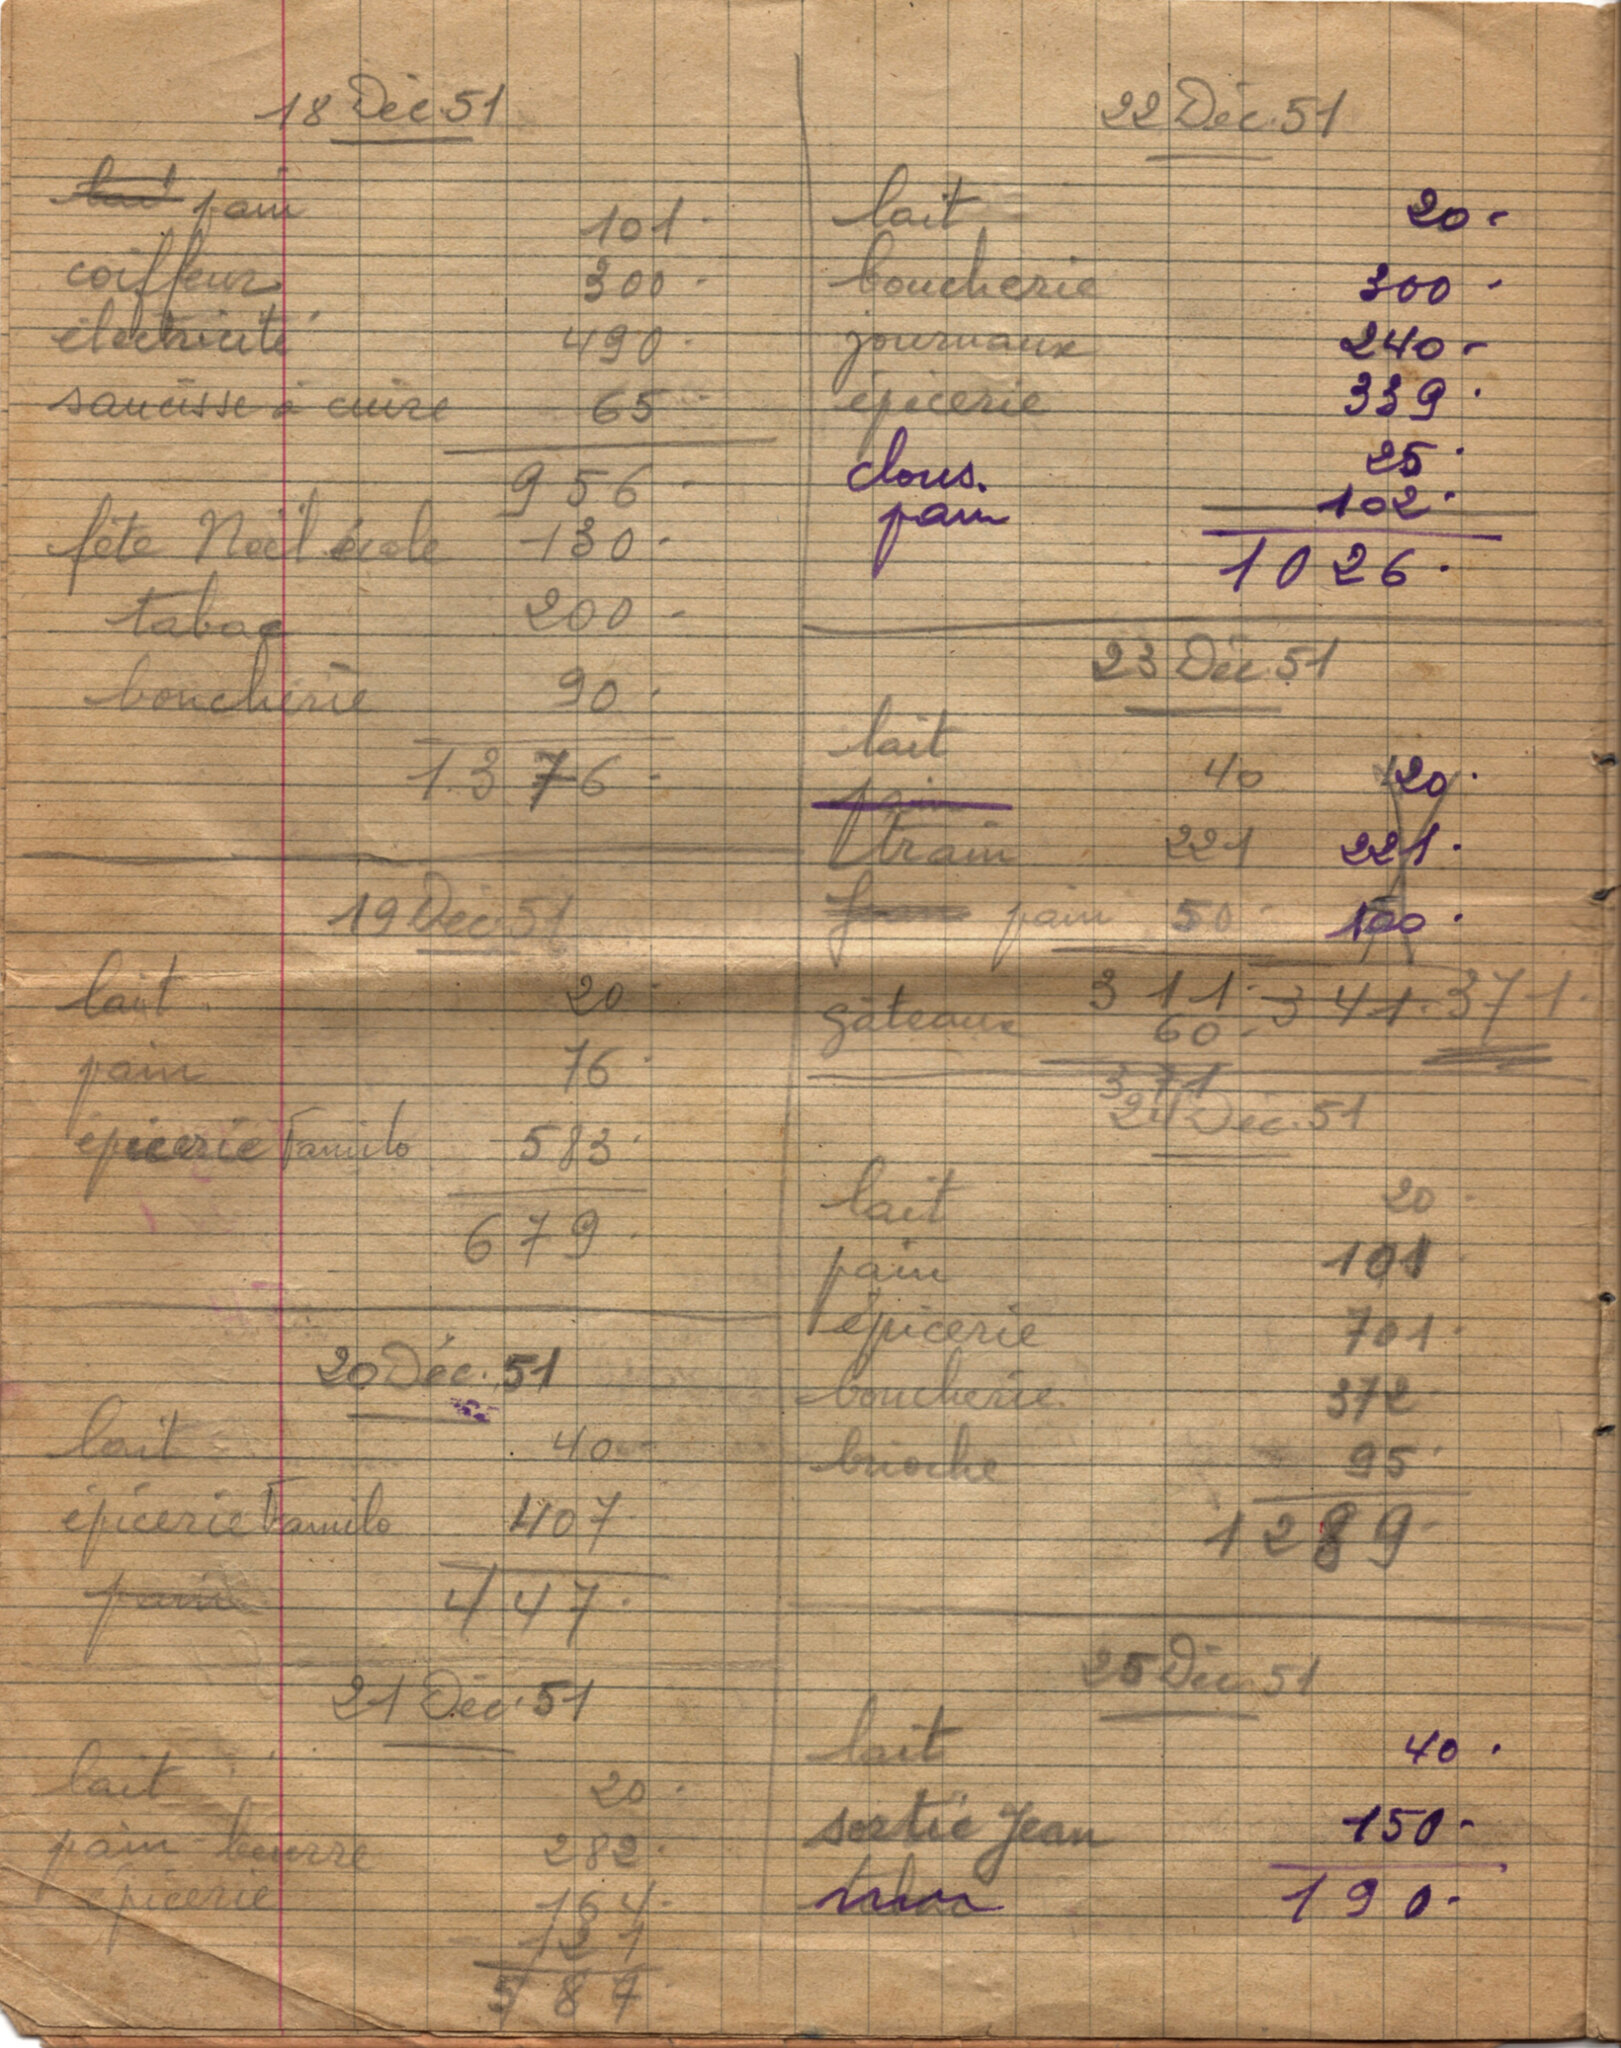 18 Déc. 51
lait pain 101.
coiffeur 300.
électricité 490.
saucisse à cuire 65
956.
fête Noël école 130.
tabac 200.
boucherie 90.
1376.
19 Déc. 51
lait 20.
pain 76.
épicerie Familo 583.
679.
20 Déc. 51
lait 40
épicerie Familo 407.
pain 447.
21 Déc. 51
lait 20.
pain beurre 282.
épicerie 164.
121
587.
22 Déc. 51
lait 20.
boucherie 300.
journaux 240.
épicerie 339.
clous. 25.
pain 102.
1026.
23 Déc. 51
lait 40 20.
pain
train 221 221.
pain 50. 100.
311. 341. 371.
gâteaux 60.
371
24 Déc. 51
lait 20.
pain 101
épicerie 701.
boucherie 372
brioche 95.
1289.
25 Déc. 51
lait 40.
sortie Jean 150.
tabac 190.